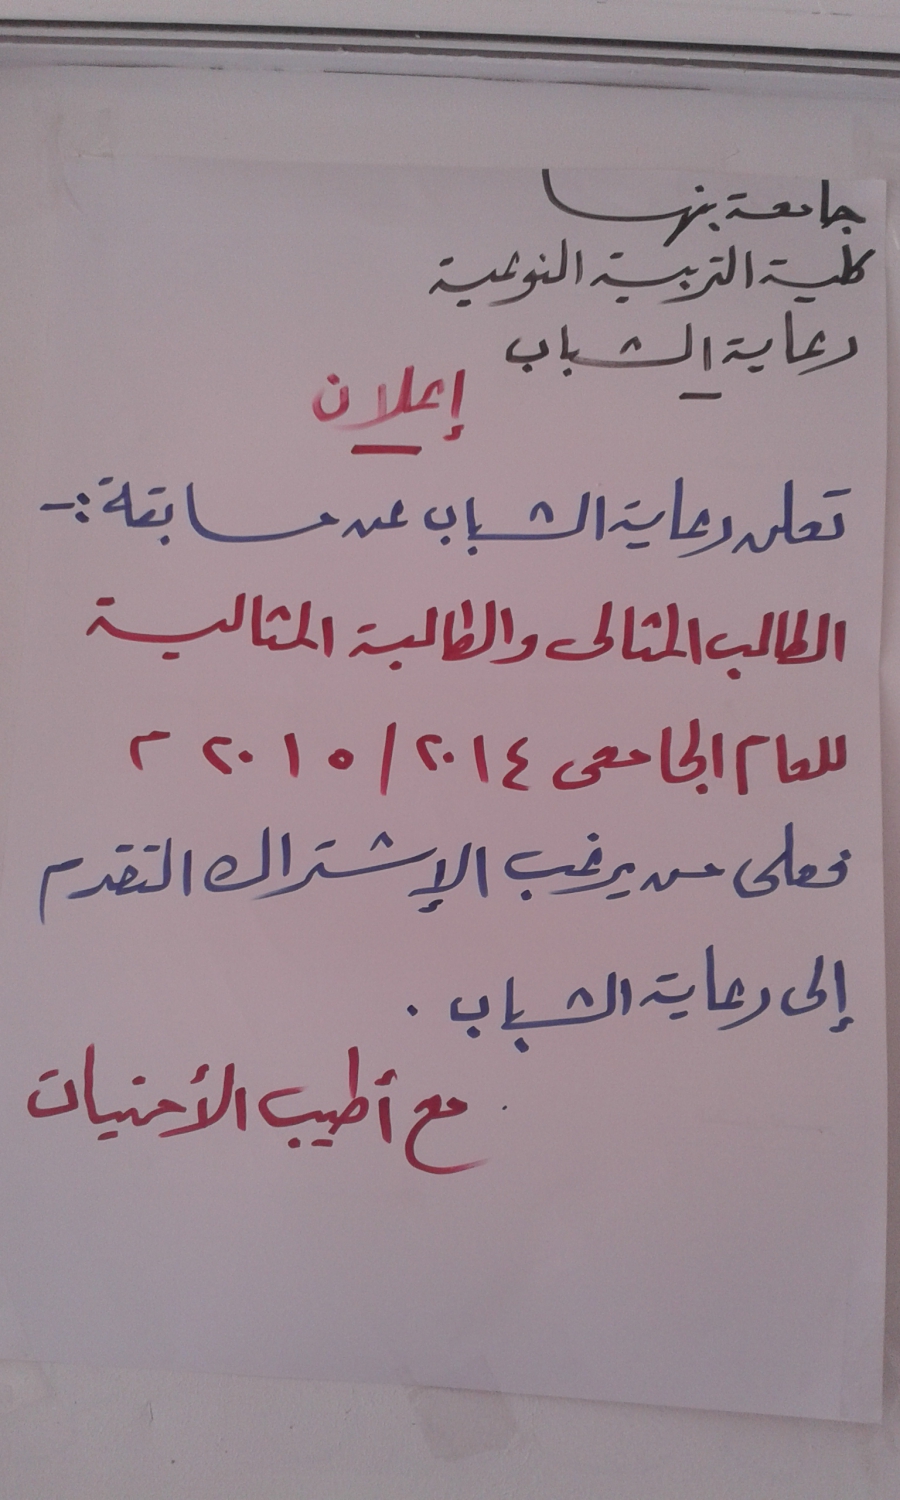 جامعة بنها
كلية التربية النوعية
رعاية الشباب
إعلان
تعلن رعاية الشباب عن مسابقة :-
الطالب المثالى والطالبة المثالية
للعام الجامعى ٢٠١٤/٢٠١٥ م
فعلى من يرغب الإشتراك التقدم
إلى رعاية الشباب .
مع أطيب الأمنيات